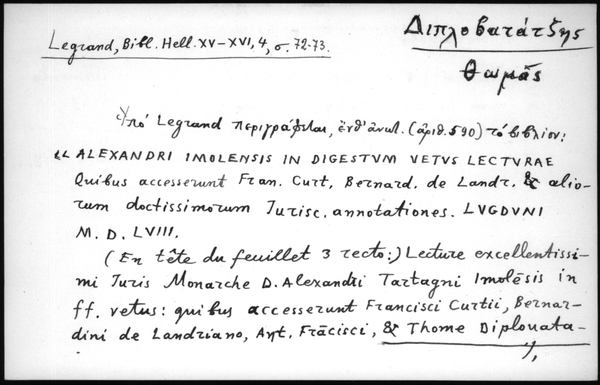 Διπλοβατάτζης
Θωμᾶς
Legrand, Bibl. Hell. XV–XVI, 4, σ. 72-73.
Ὑπό Legrand περιγράφεται, ἔνθ' ἀνωτ. (ἀριθ. 590) τό βιβλίον:
« ALEXANDRI IMOLENSIS IN DIGESTVM VETVS LECTVRAE
Quibus accesserunt Fran. Curt, Bernard. de Landr. & alio-
rum doctissimorum Jurisc. annotationes. LVGDVNI
M. D. LVIII.
(En tête du feuillet 3 recto:) Lecture excellentissi-
mi Juris Monarche D. Alexandri Tartagni Imolēsis in
ff. vetus: quibus accesserunt Francisci Curtii, Bernar-
dini de Landriano, Ant. Frācisci, & Thome Diplouata-